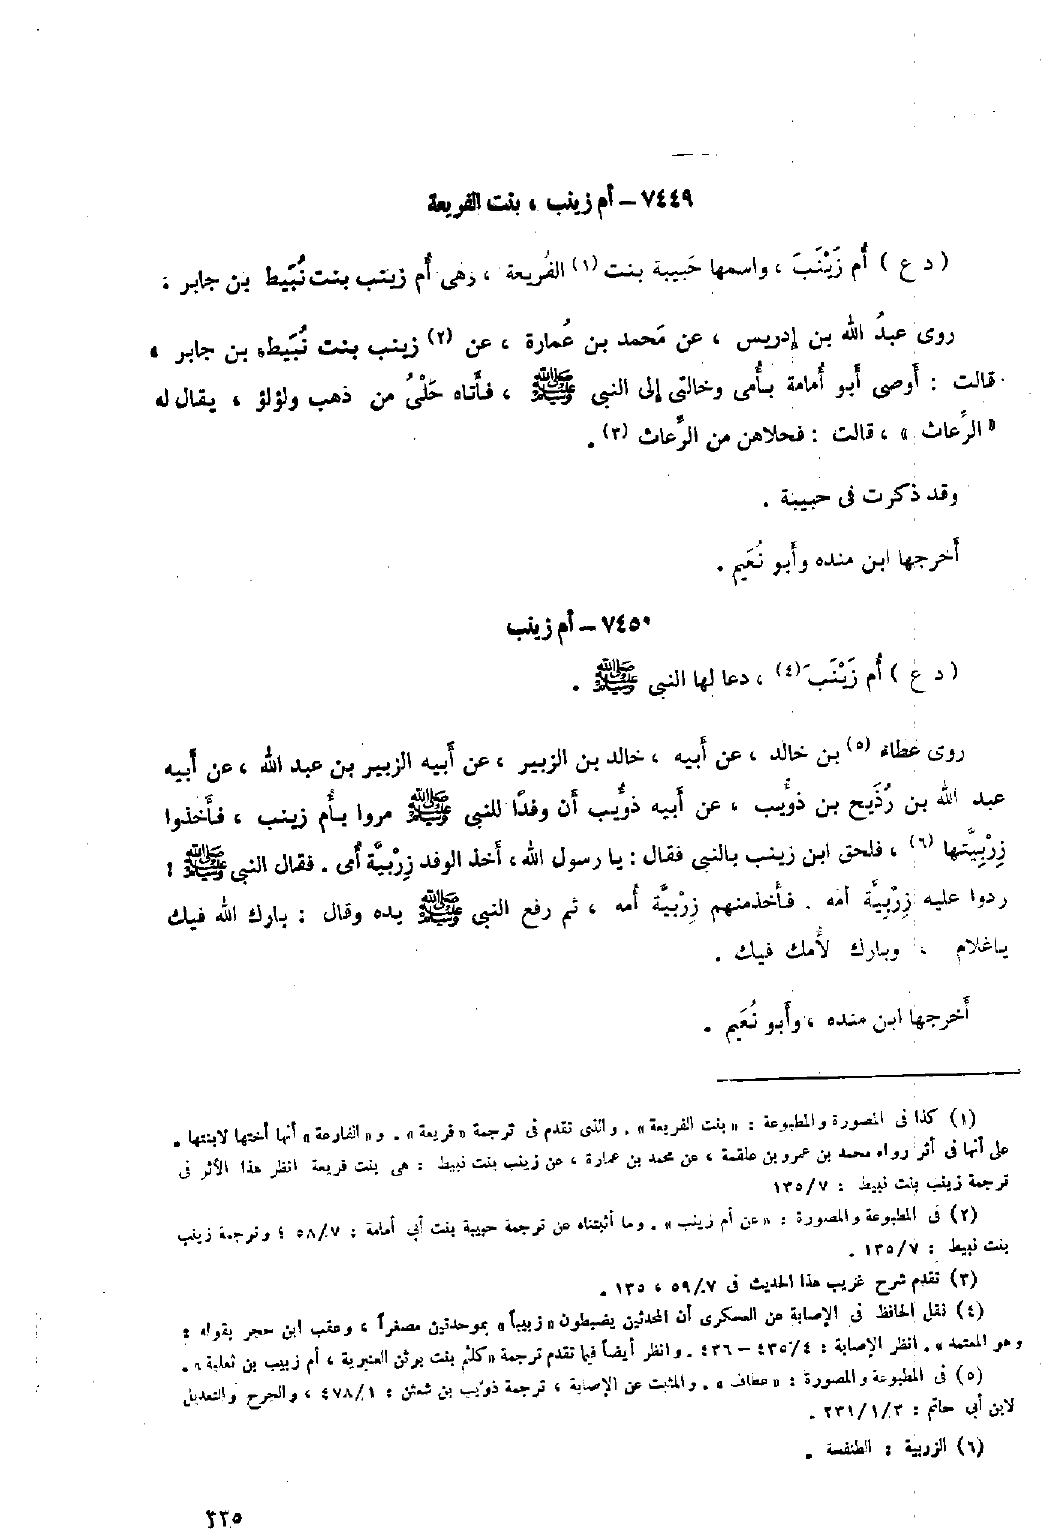 ٧٤٤٩ – أم زينب ، بنت الفريعة
( د ع ) أُم زَيْنَبَ ، واسمها حَبيبة بنت (١) الفُريعة ، وهى أُم زينب بنت نُبَيط بن جابر :
روى عبدُ الله بن إدريس ، عن مَحمد بن عُمارة ، عن (٢) زينب بنت نُبَيطه بن جابر ،
قالت : أَوصى أَبو أُمامة بأُمى وخالتى إلى النبى ﷺ ، فأَتاه حَلْىُ من ذهب ولؤلؤ ، يقال له
« الرِّعاث » ، قالت : فحلاهن من الرِّعاث (٣) .
وقد ذكرت فى حبيبة .
أَخرجها ابن منده وأَبو نُعَيم .
٧٤٥٠ – أم زينب
( د ع ) أُم زَيْنَبَ (٤) ، دعا لها النبى ﷺ .
روى عطاء (٥) بن خالد ، عن أَبيه ، خالد بن الزبير ، عن أَبيه الزبير بن عبد الله ، عن أَبيه
عبد الله بن رُدَيح بن ذؤَيب ، عن أَبيه ذؤَيب أَن وفدًا للنبى ﷺ مروا بأُم زينب ، فأَخذوا
زِرْبِيَّتها (٦) ، فلحق ابن زينب بالنبى فقال : يا رسول الله ، أَخذ الوفد زِرْبيَّة أُمى . فقال النبى ﷺ :
ردوا عليه زِرْبيَّة أمه . فأَخذمنهم زِرْبيَّة أُمه ، ثم رفع النبى ﷺ يده وقال : بارك الله فيك
ياغلام ، وبارك لأُمك فيك .
أَخرجها ابن منده ، وأَبو نُعَيم .
(١) كذا فى المصورة والمطبوعة : « بنت الفريعة » . والذى تقدم فى ترجمة « فريعة » . و « الفارعة » أنها أختها لابنتها .
على أنها فى أثر رواه محمد بن عمرو بن علقمة ، عن محمد بن عمارة ، عن زينب بنت نبيط : هى بنت فريعة انظر هذا الأثر فى
ترجمة زينب بنت نبيط : ١٣٥/٧
(٢) فى المطبوعة والمصورة : « عن أم زينب » . وما أثبتناه عن ترجمة حبيبة بنت أبى أمامة : ٥٨/٧ ؛ وترجمة زينب
بنت نبيط : ١٣٥/٧ .
(٣) تقدم شرح غريب هذا الحديث فى ٥٩/٧ ، ١٣٥ .
(٤) نقل الحافظ فى الإصابة عن العسكرى أن المحدثين يضبطون « زبيباً » بموحدتين مصغراً ، وعقب ابن حجر بقوله :
وهو المعتمد » . انظر الإصابة : ٤٣٥/٤ – ٤٣٦ . وانظر أيضاً فيما تقدم ترجمة « كلثم بنت برثن العنبرية ، أم زبيب بن ثعلبة » .
(٥) فى المطبوعة والمصورة : « عطاف » . والمثبت عن الإصابة ، ترجمة ذؤيب بن شعثن : ٤٧٨/١ ، والجرح والتعديل
لابن أبى حاتم : ٢٣١/١/٣ .
(٦) الزربية : الطنفسة .
٣٣٥